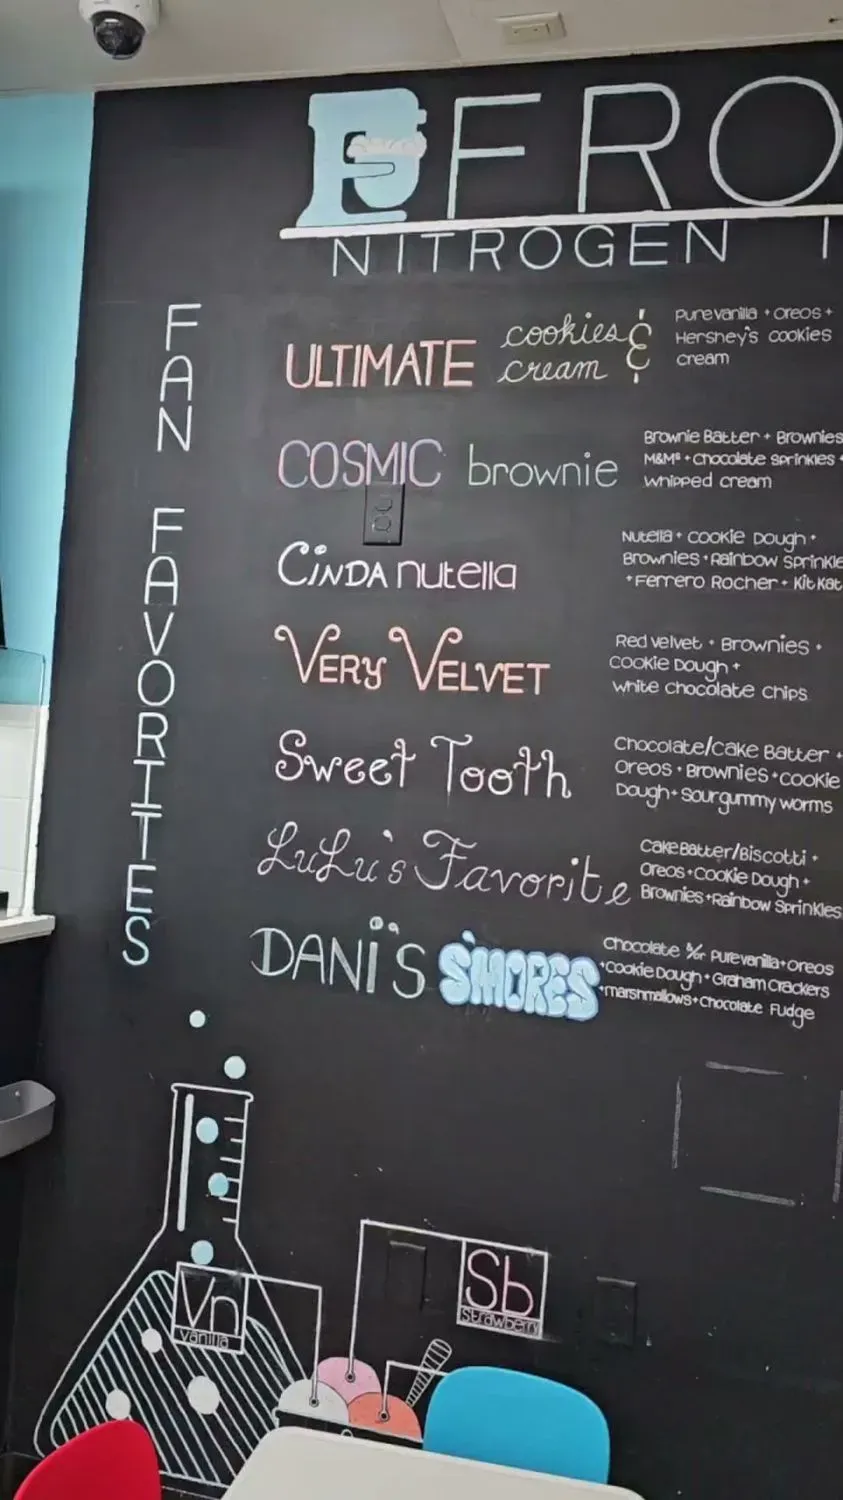 FRO
NITROGEN I
FAN FAVORITES
ULTIMATE cookies & cream
Pure vanilla + oreos +
Hershey's cookies
cream
COSMIC brownie
Brownie Batter + Brownies
M&Ms + chocolate sprinkles +
whipped cream
CiNDA nutella
Nutella + Cookie Dough +
Brownies + Rainbow Sprinkle
+ Ferrero Rocher + KitKat
VERY VELVET
Red velvet + Brownies +
Cookie Dough +
white chocolate chips
Sweet Tooth
Chocolate/Cake Batter +
Oreos + Brownies + cookie
Dough + sour gummy worms
LuLu's Favorite
Cake Batter/Biscotti +
Oreos + Cookie Dough +
Brownies + Rainbow Sprinkles
DANi'S S'MORES
Chocolate &/or Pure vanilla + oreos
+ Cookie Dough + Graham Crackers
+ marshmallows + Chocolate Fudge
Sb
Strawberry
Vn
Vanilla